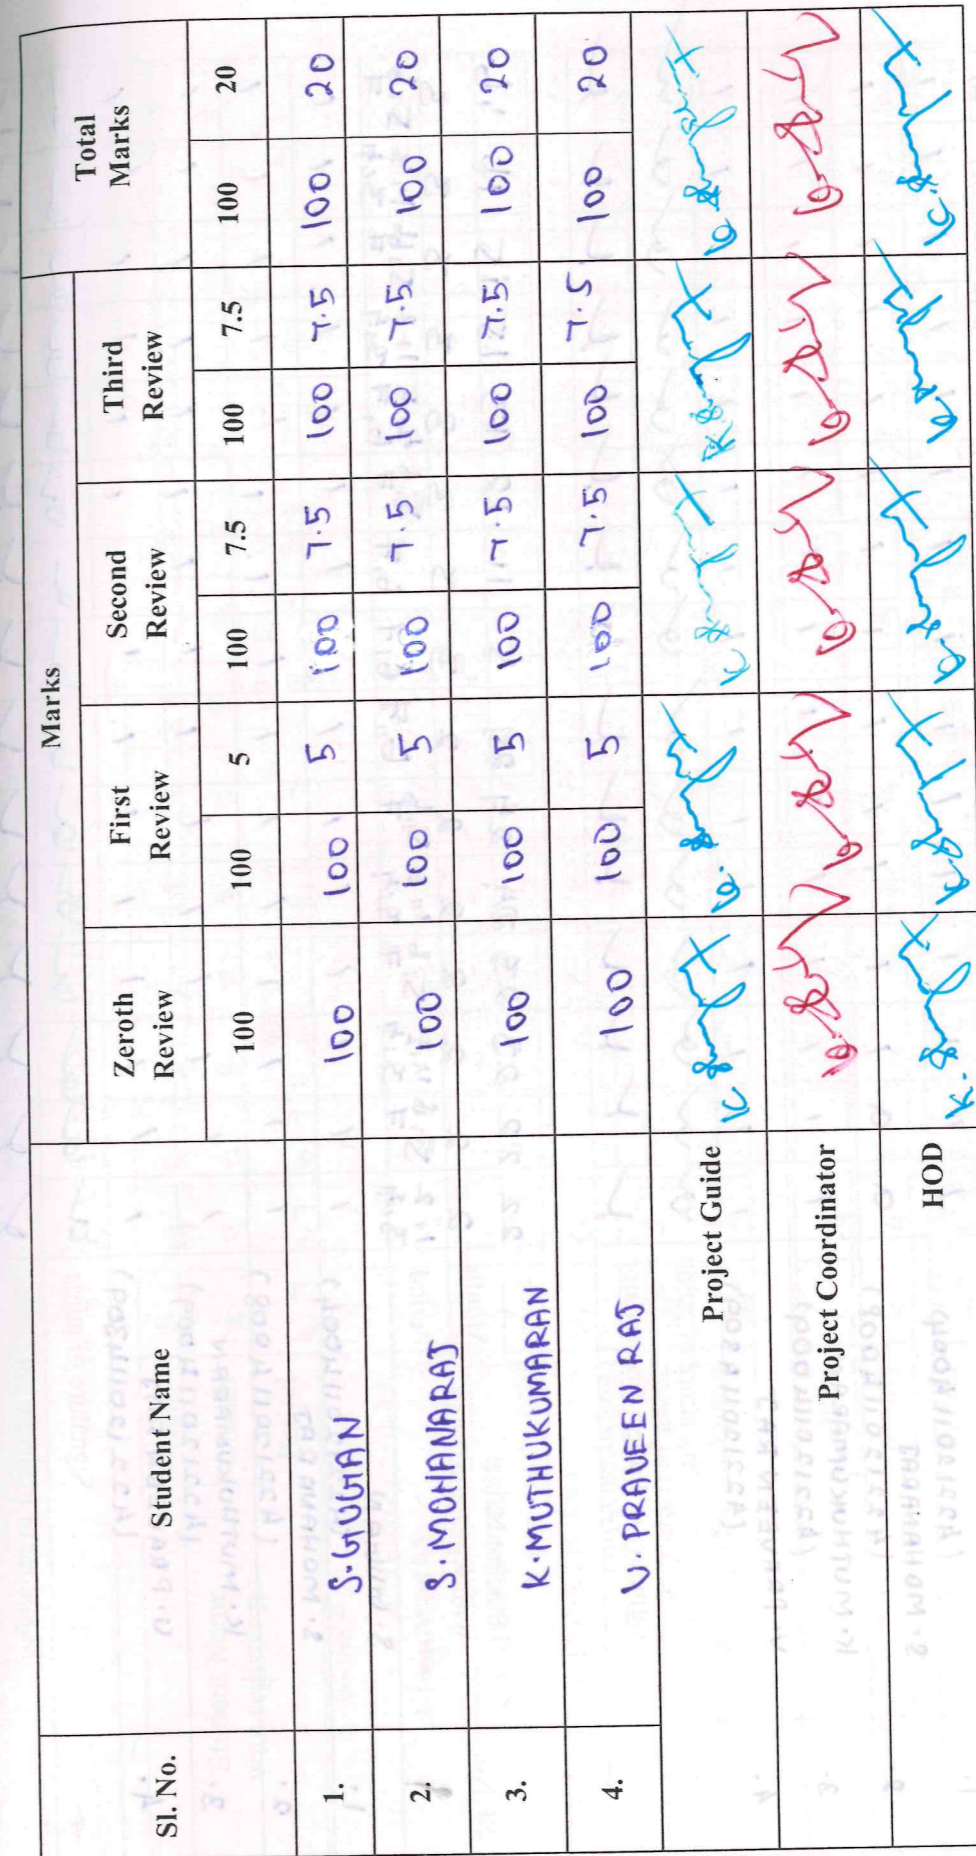 Sl. No. Student Name Marks
Zeroth Review First Review Second Review Third Review Total Marks
100 100 5 100 7.5 100 7.5 100 20
1. S.GUGAN 100 100 5 100 7.5 100 7.5 100 20
2. S.MOHANARAJ 100 100 5 100 7.5 100 7.5 100 20
3. K.MUTHUKUMARAN 100 100 5 100 7.5 100 7.5 100 20
4. V. PRAVEEN RAJ 100 100 5 100 7.5 100 7.5 100 20
Project Guide
Project Coordinator
HOD